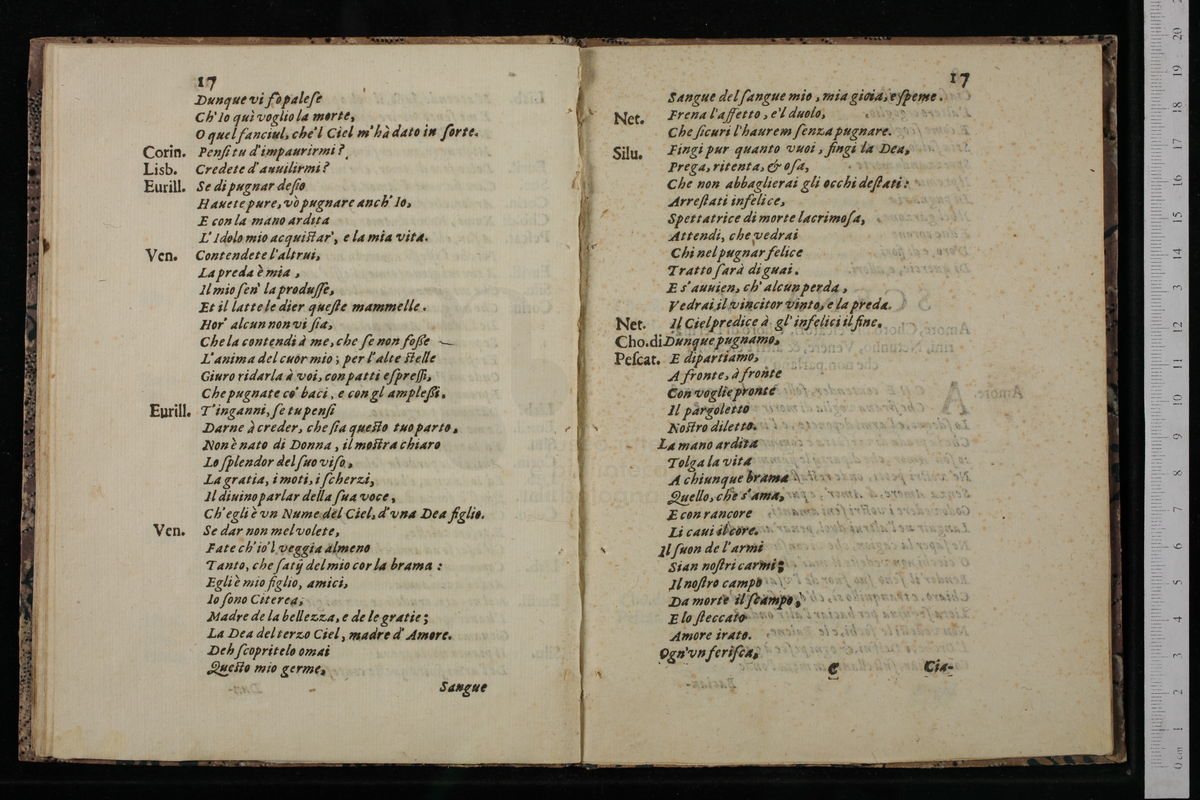 17
Dunque vi fo paleſe
Ch'Io quì voglio la morte,
O quel fanciul, che'l Ciel m'hà dato in ſorte.
Corin. Penſi tu d'impaurirmi?
Lisb. Credete d'auuilirmi?
Eurill. Se di pugnar deſio
Hauete pure, vò pugnare anch' Io,
E con la mano ardita
L'Idolo mio acquiſtar', e la mia vita.
Ven. Contendete l'altrui,
La preda è mia,
Il mio ſen' la produſſe,
Et il latte le dier queſte mammelle.
Hor' alcun non vi ſia,
Che la contendi à me, che ſe non foſſe
L'anima del cuor mio; per l'alte ſtelle
Giuro ridarla à voi, con patti eſpreſſi,
Che pugnate cō baci, e con gl'ampleſſi.
Eurill. T'inganni, ſe tu penſi
Darne à creder, che ſia queſto tuo parto,
Non è nato di Donna, il moſtra chiaro
Lo ſplendor del ſuo viſo,
La gratia, i moti, i ſcherzi,
Il diuino parlar della ſua voce,
Ch'egli è vn Nume del Ciel, d'vna Dea figlio.
Ven. Se dar non mel volete,
Fate ch'io'l veggia almeno
Tanto, che ſatij del mio cor la brama:
Egli è mio figlio, amici,
Io ſono Citerea,
Madre de la bellezza, e de le gratie;
La Dea del terzo Ciel, madre d'Amore.
Deh ſcopritelo omai
Queſto mio germe,
Sangue
17
Sangue del ſangue mio, mia gioia, e ſpeme.
Net. Frena l'affetto, e'l duolo,
Che ſicuri l'haurem ſenza pugnare.
Silu. Fingi pur quanto vuoi, fingi la Dea,
Prega, ritenta, & oſa,
Che non abbaglierai gli occhi deſtati:
Arreſtati infelice,
Spettatrice di morte lacrimoſa,
Attendi, che vedrai
Chi nel pugnar felice
Tratto ſarà di guai.
E s'auuien, ch'alcun perda,
Vedrai il vincitor vinto, e la preda.
Net. Il Ciel predice à gl'infelici il fine.
Cho.di Dunque pugnamo,
Peſcat. E dipartiamo,
A fronte, à fronte
Con voglie pronte
Il pargoletto
Noſtro diletto.
La mano ardita
Tolga la vita
A chiunque brama
Quello, che s'ama,
E con rancore
Li caui il core.
Il ſuon de l'armi
Sian noſtri carmi;
Il noſtro campo
Da morte il ſcampo,
E lo ſteccato
Amore irato.
Ogn'vn feriſca,
C Cia-